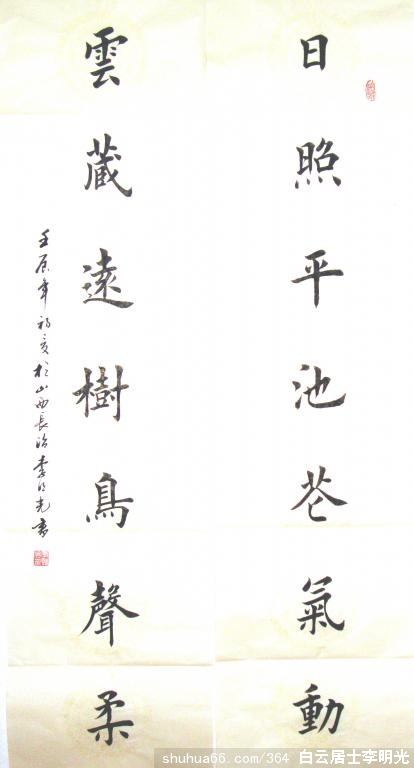 日照平池花氣動
雲藏遠樹鳥聲柔
壬辰年初夏於山西長治李明光書
shuhua66.com/364 白云居士李明光